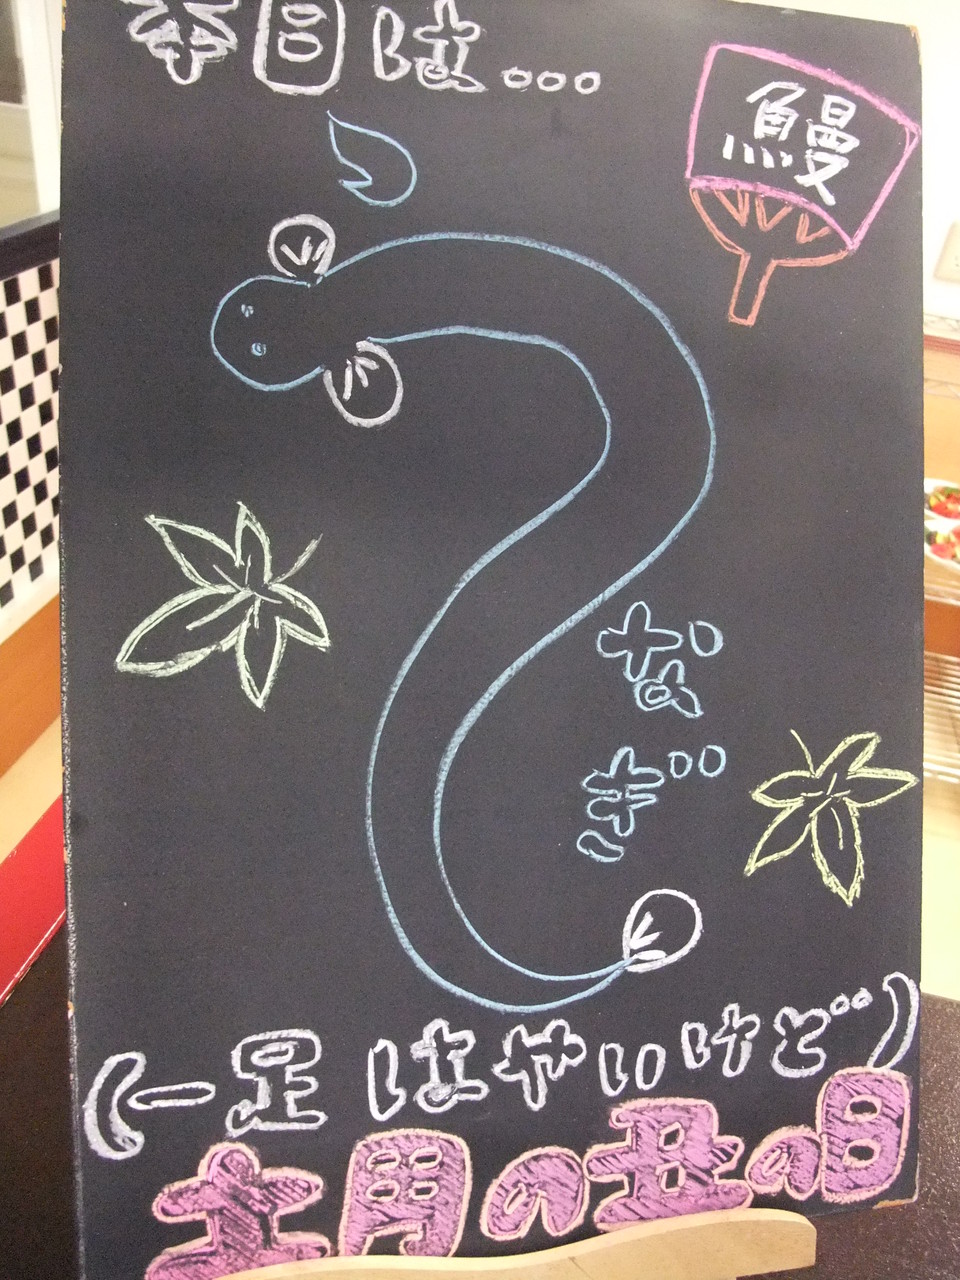 本日は...
鰻
うなぎ
(一足はやいけど)
土用の丑の日